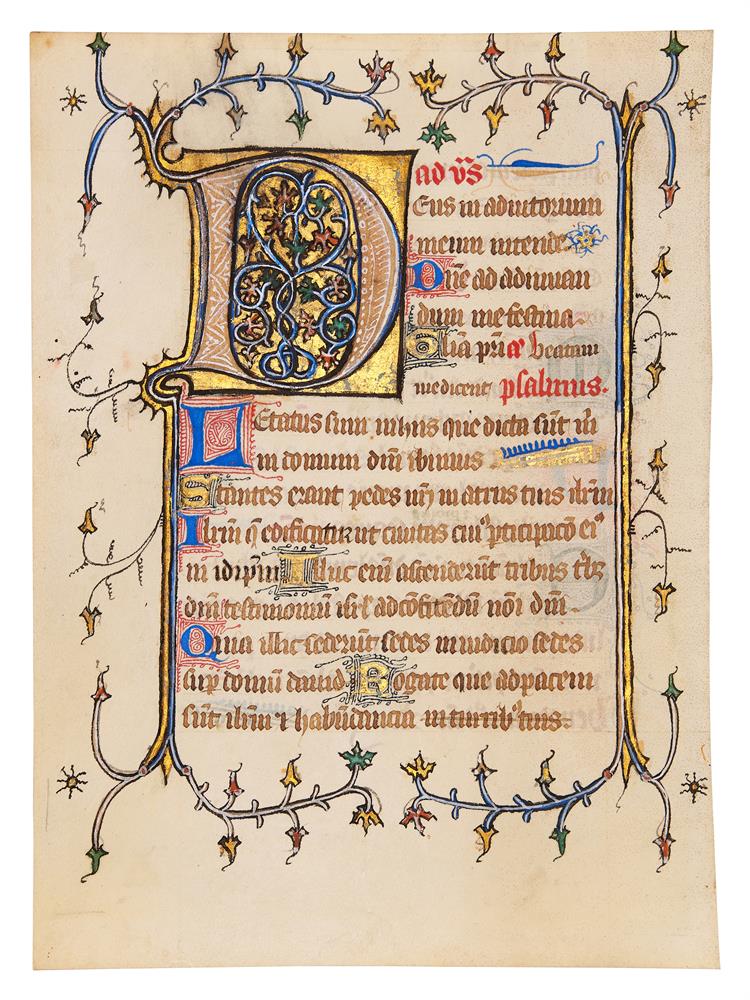 ad vṽs
Deus in adiutorium
meum intende
Dñe ad adiuuan
dum me festina.
Alia priñ cæ beatam
me dicent psalmus.
Letatus sum in hiis que dicta sũt m̃
in domum dñi ibimus
Stantes erant pedes nr̃i in atriis tuis ilr̃m
Ilrm̃ q̃ edificatur ut ciuitas cui⁹ pticipac̃o ei⁹
in idip̃m Illuc em̃ ascenderũt tribus
dñi testimoniũ isr̃l ad cõfitẽdũ nõi dñi.
Quia illic sederũt sedes in iudicio sedes
sup̃ domũ dauid Rogate que ad pacem
sũt ilrm̃ ⁊ habũdancia in turrib⁹ tuis.